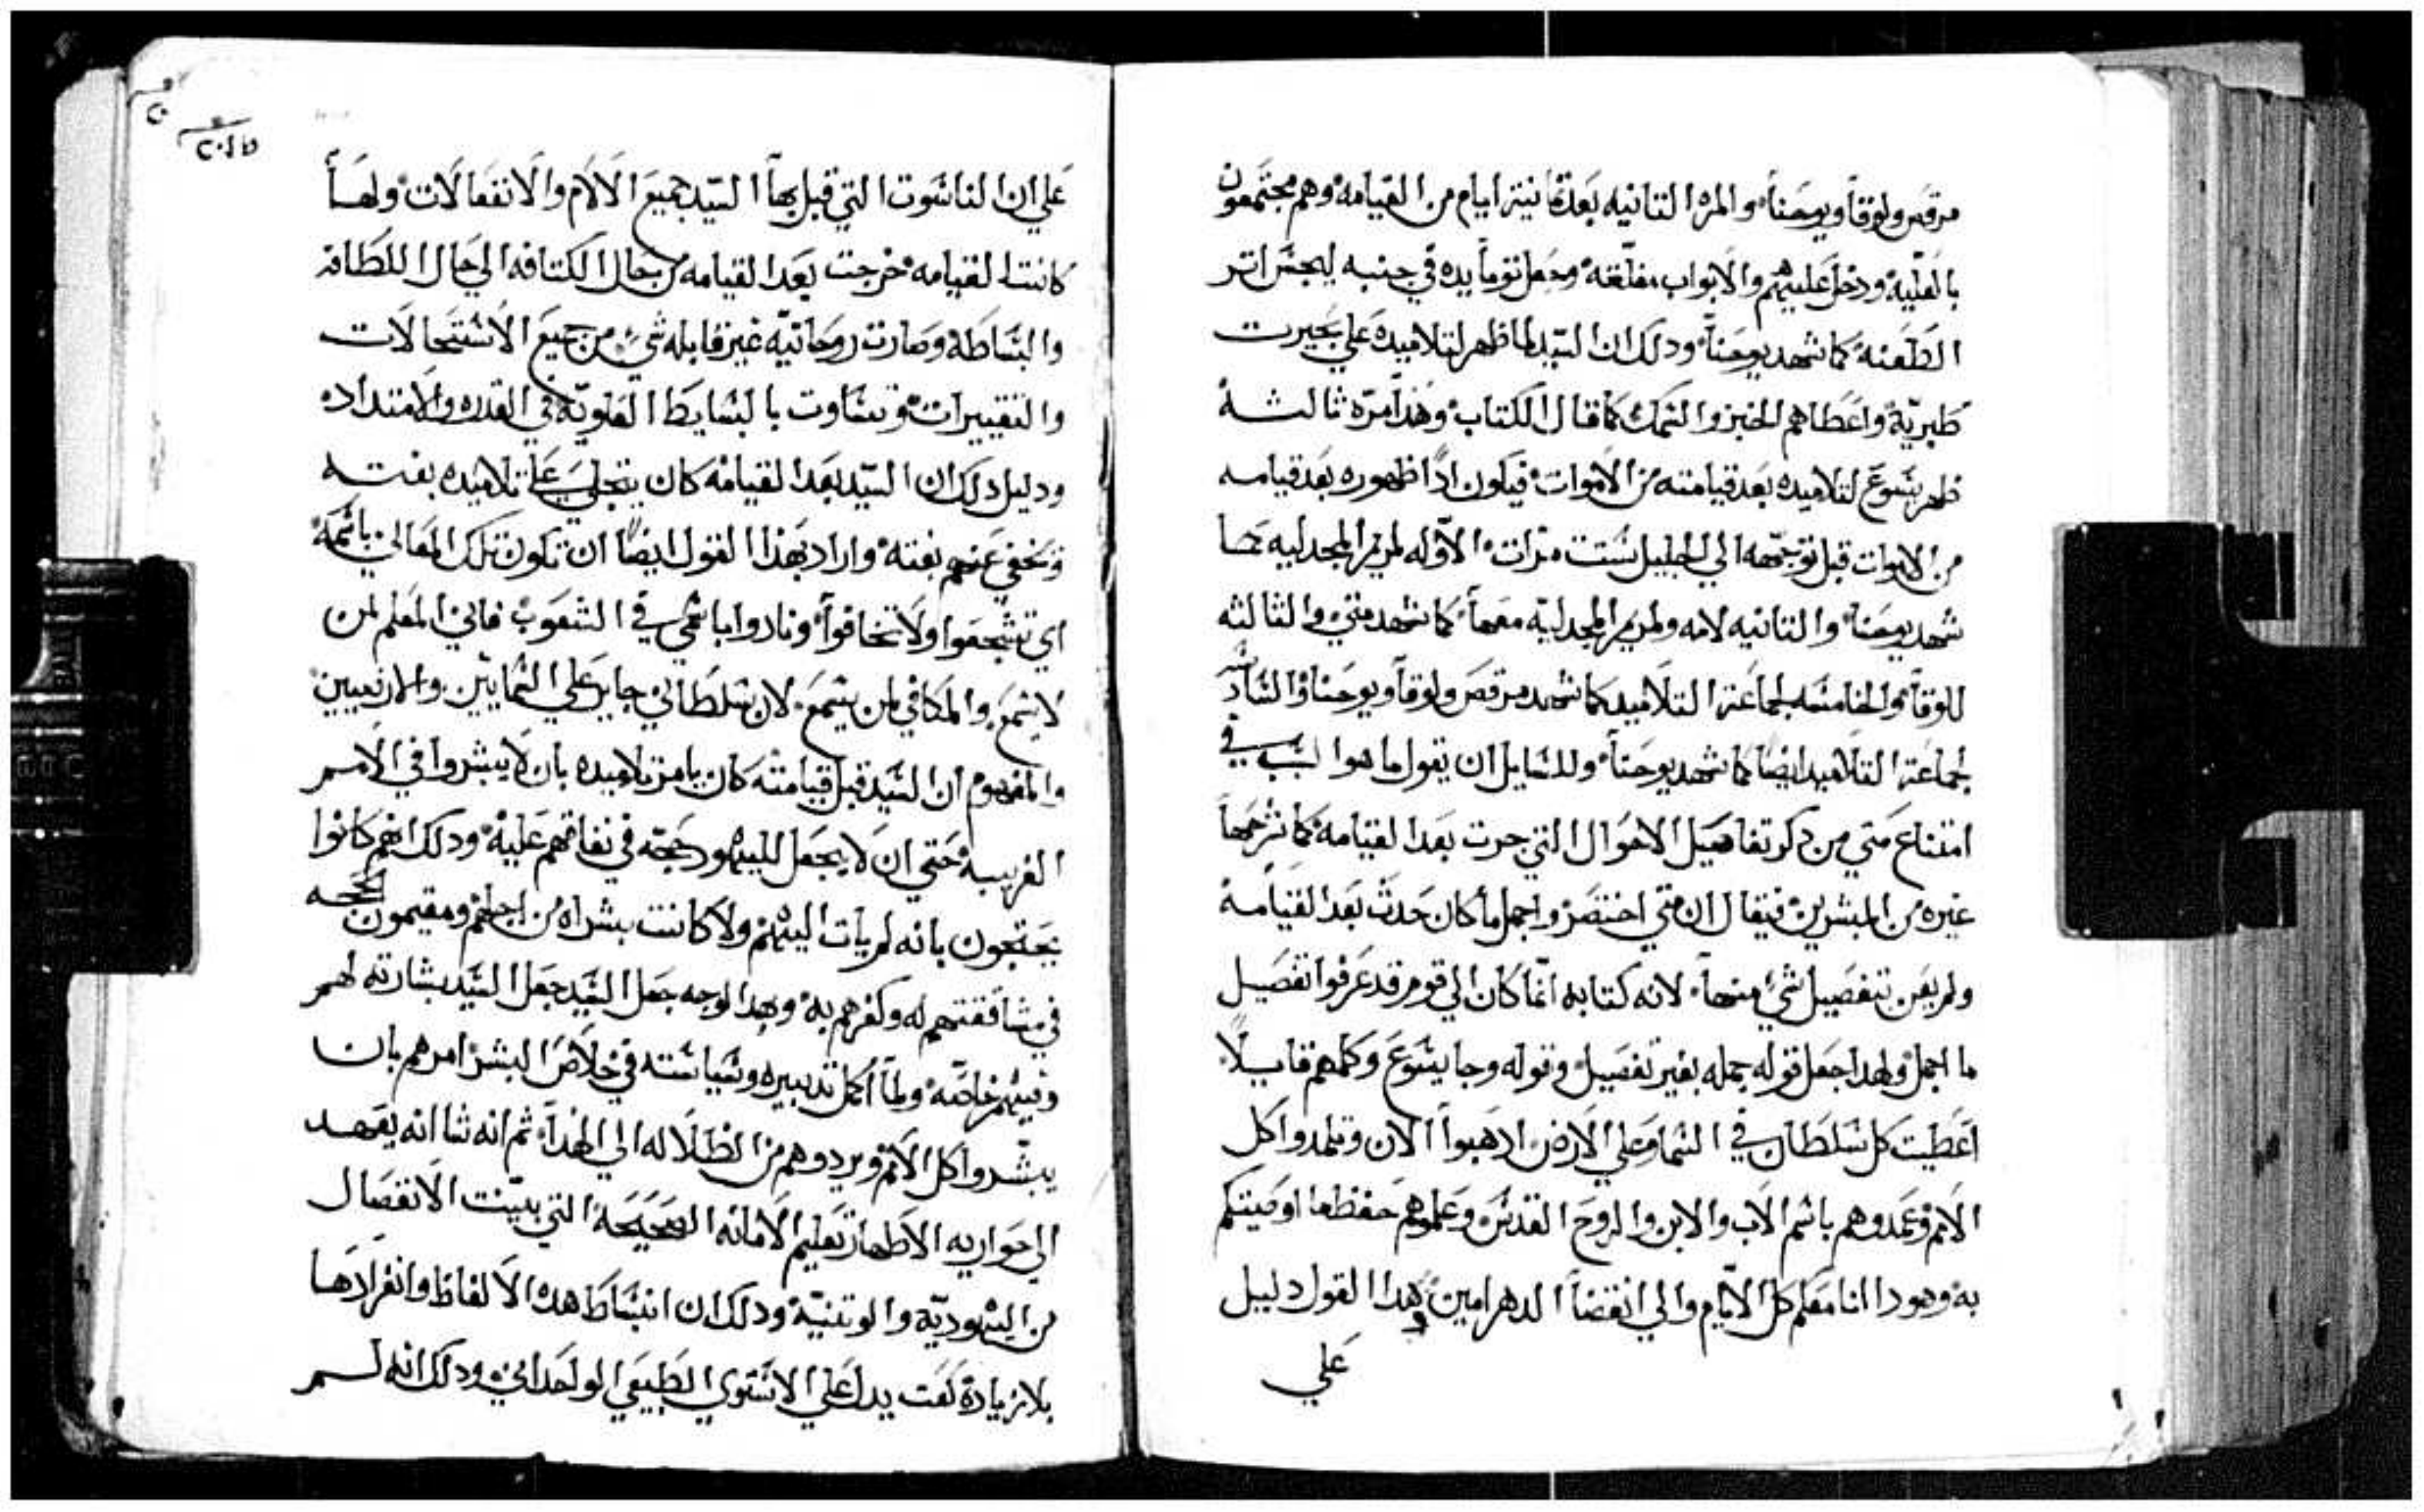 مرقص ولوقا ويوحنا والمره التانيه بعد تمانية ايام من القيامه وهم مجتمعون
بالعليه ودخل عليهم والابواب مغلقه وجعل توما يده في جنبه ليجس اتر
الطعنه كما شهد يوحنا ودلك ان السيد لما ظهر لتلاميده علي بحيرت
طبريه واعطاهم الخبز والسمك كما قال الكتاب وهذا مره ثالثه
ظهر يسوع لتلاميده بعد قيامته من الاموات فيكون ادا ظهوره بعد قيامه
من الاموات قبل توجهه الي الجليل ستت مرات الاوله لمريم المجدليه كما
شهد يوحنا والتانيه لامه ولمريم المجدليه معها كما شهد متي والثالثه
للوقا والخامسه لجماعة التلاميد كما شهد مرقص ولوقا ويوحنا والسادسه
لجماعة التلاميد ايضا كما شهد يوحنا وللسايل ان يقول ما هوا السبب في
امتناع متي من دكر تفاصيل الاحوال التي جرت بعد القيامه كما شرحها
غيره من المبشرين فيقال ان متي اختصر واجمل ما كان حدث بعد القيامه
ولم يعن بتفصيل شي منها لانه كتابه انما كان الي قوم قد عرفوا تفصيل
ما اجمل ولهدا جعل قوله جمله بغير تفصيل وقوله وجا يسوع وكلمهم قايلا
اعطيت كل سلطان في السما وعلي الارض ادهبوا الان وتلمدوا كل
الامم وعمدوهم باسم الاب والابن والروح القدس وعلموهم حفظ ما اوصيتكم
به وهودا انا معكم كل الايام والي انقضا الدهر امين وهدا القول دليل
علي
علي ان الناسوت التي قبل بها السيد جميع الالام والانفعالات ولها
كانت القيامه خرجت بعد القيامه من حال الكتافه الي حال اللطافه
والبساطه وصارت روحانيه غير قابله شي من جميع الاستحالات
والتغييرات وتساوت بالبسايط العلويه في القدره والامتداده
ودليل دلك ان السيد بعد القيامه كان يتجلي علي تلاميده بغته
ويخفي عنهم بغته واراد بهذا القول ايضا ان تكون تلك المعالي باسمه
اي تشجعوا ولا تخافوا ونادوا باسمي في الشعوب فاني المعلم لمن
لا يسمع والمكافي لمن يسمع لان سلطاني جايز علي السمايين والارضيين
والمفهوم ان السيد قبل قيامته كان يامر تلاميده بان لا يبشروا في الامم
الغريبه حتي ان لا يجعل لليهود حجه في نفاقهم عليه ودلك انهم كانوا
يحتجون بانه لم يات اليهم ولا كانت بشراه من اجلهم ومقيمون الحجه
في مشاققتهم له وكفرهم به وبهدا الوجه جعل السيد جعل السيد بشارته لهم
وفيهم خاصه ولما اكمل تدبيره وسياسته في خلاص البشر امرهم بان
يبشروا كل الامم ويردوهم من الظلاله الي الهدا ثم انه شا انه يعهد
الي حواريه الاطهار تعليم الامانه الصحيحه التي بينت الانفصال
من اليهوديه والوتنيه ودلك ان انبساط هده الالفاظ وانفرادها
بلا زيادة نعت يدل علي الاستوي الطبيعي الوحداني ودلك انه لم